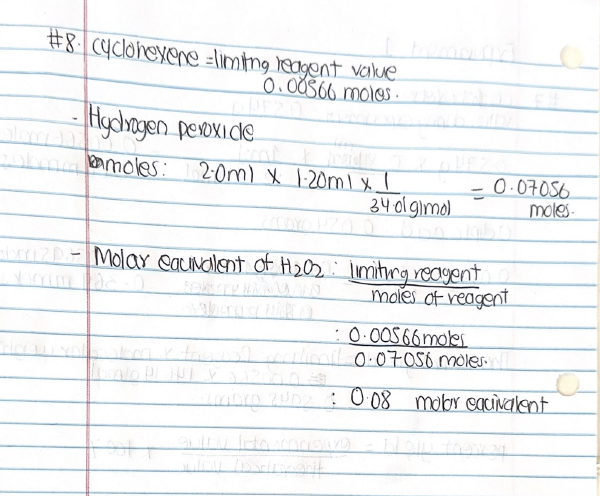 #8. cyclohexene = limiting reagent value
0.00566 moles.
- Hydrogen peroxide
moles: 2.0ml x 1.20ml x 1/34.01g/mol = 0.07056 moles.
- Molar equivalent of H2O2: limiting reagent/moles of reagent
: 0.00566 moles/0.07056 moles.
: 0.08 molar equivalent